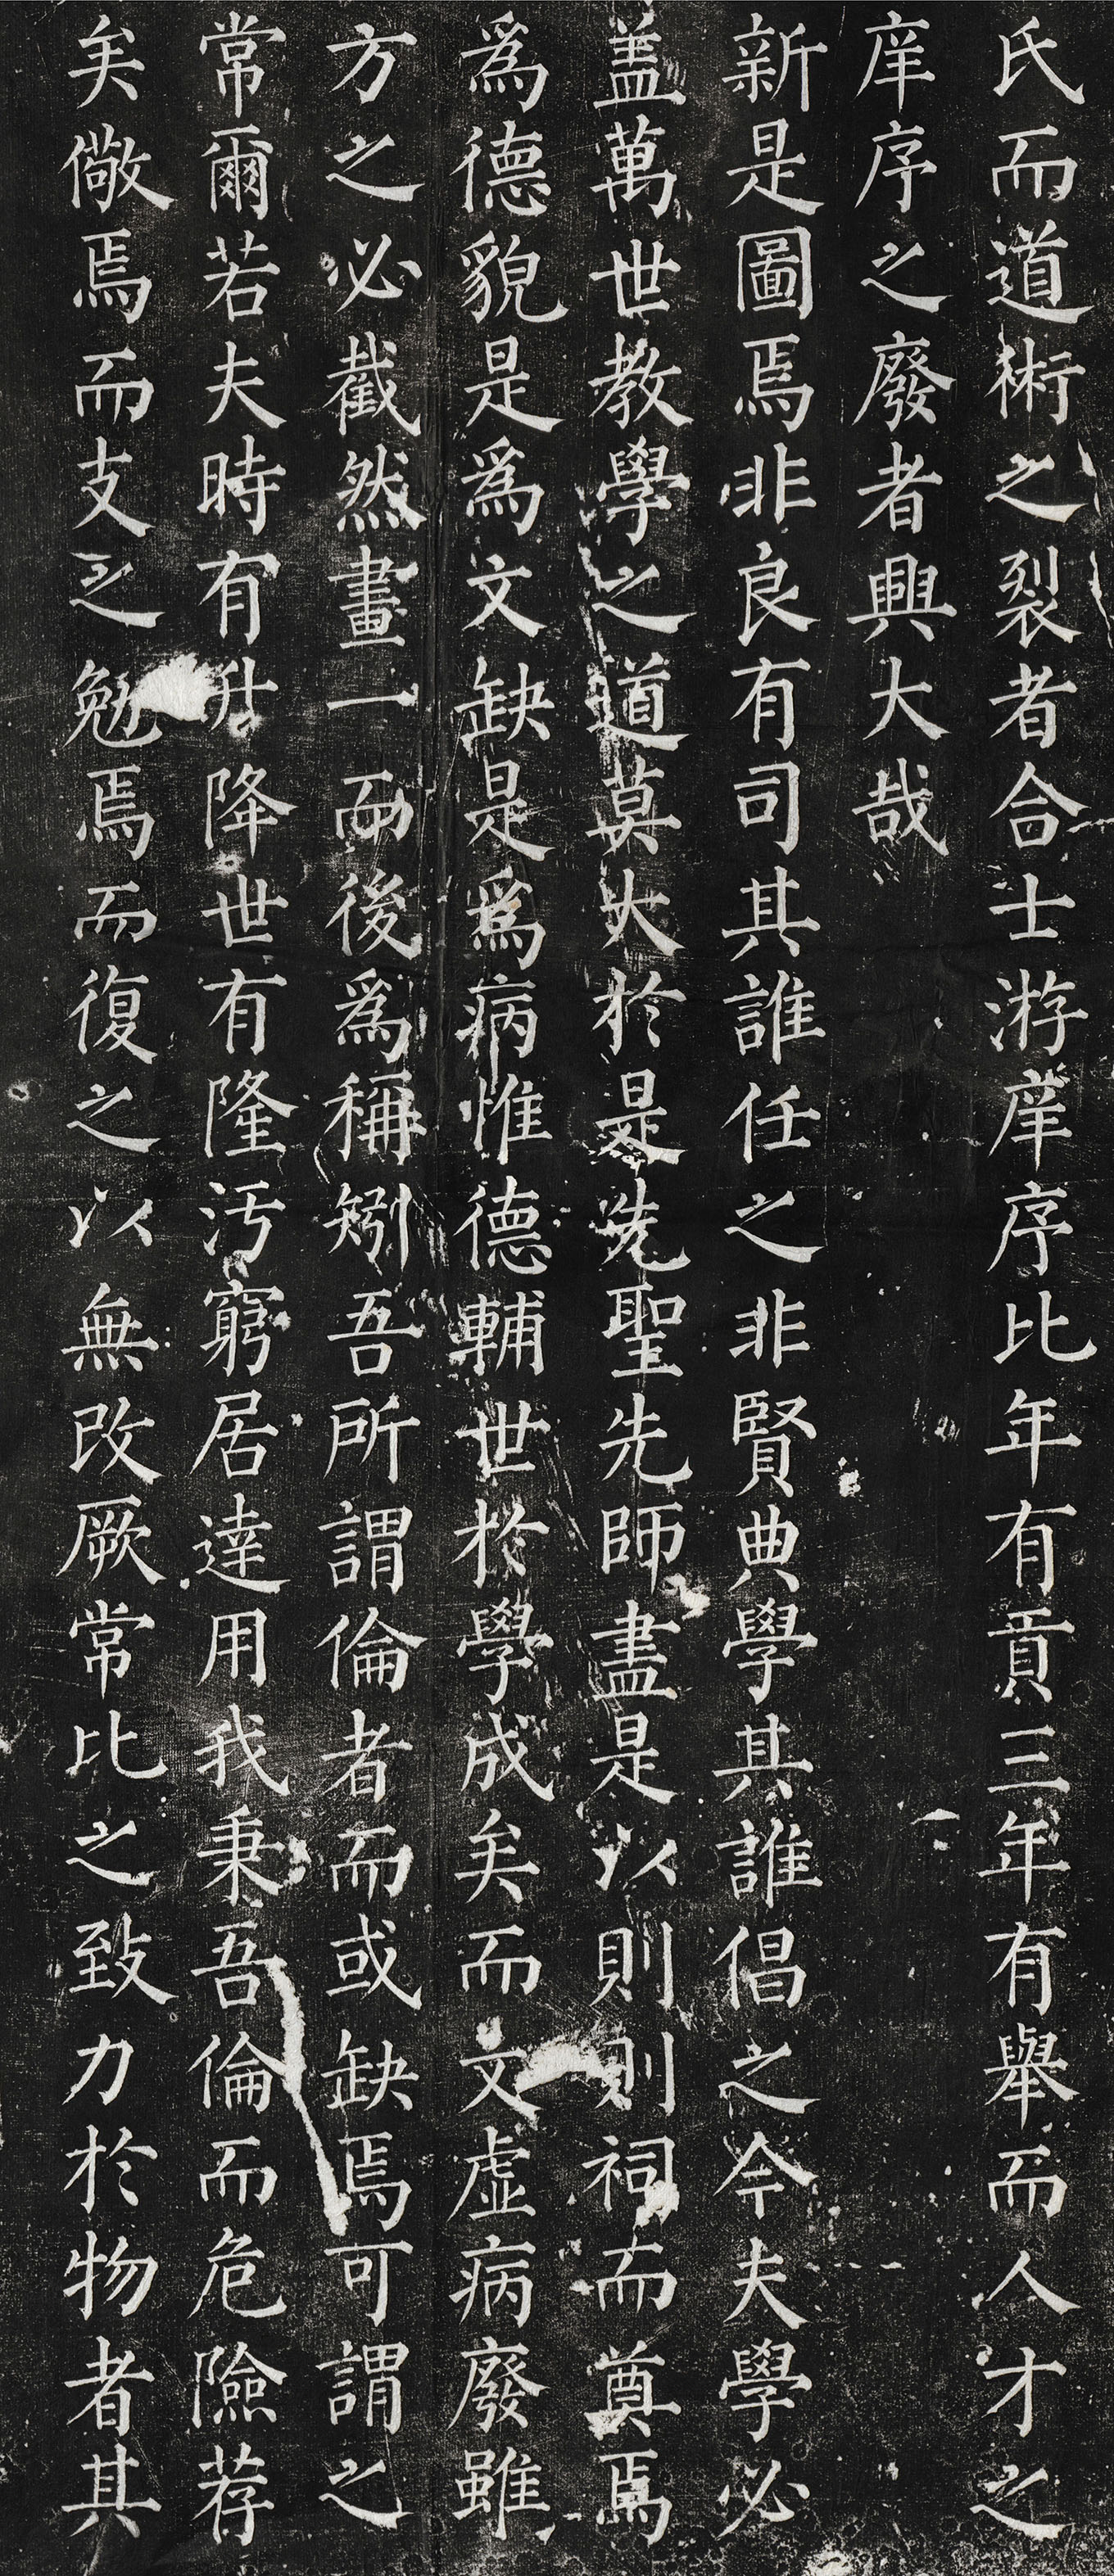 氏而道術之裂者合士游庠序比年有貢三年有舉而人才之
庠序之廢者興大哉
新是圖焉非良有司其誰任之非賢典學其誰倡之今夫學必
盖萬世教學之道莫大於是先聖先師盡是以則則祠而奠焉
爲德貌是爲文缺是爲病惟德輔世於學成矣而文虛病廢雖
方之必截然畫一而後爲稱矧吾所謂倫者而或缺焉可謂之
常爾若夫時有升降世有隆汚窮居達用我秉吾倫而危險荐
矣儆焉而支之勉焉而復之以無改厥常比之致力於物者其